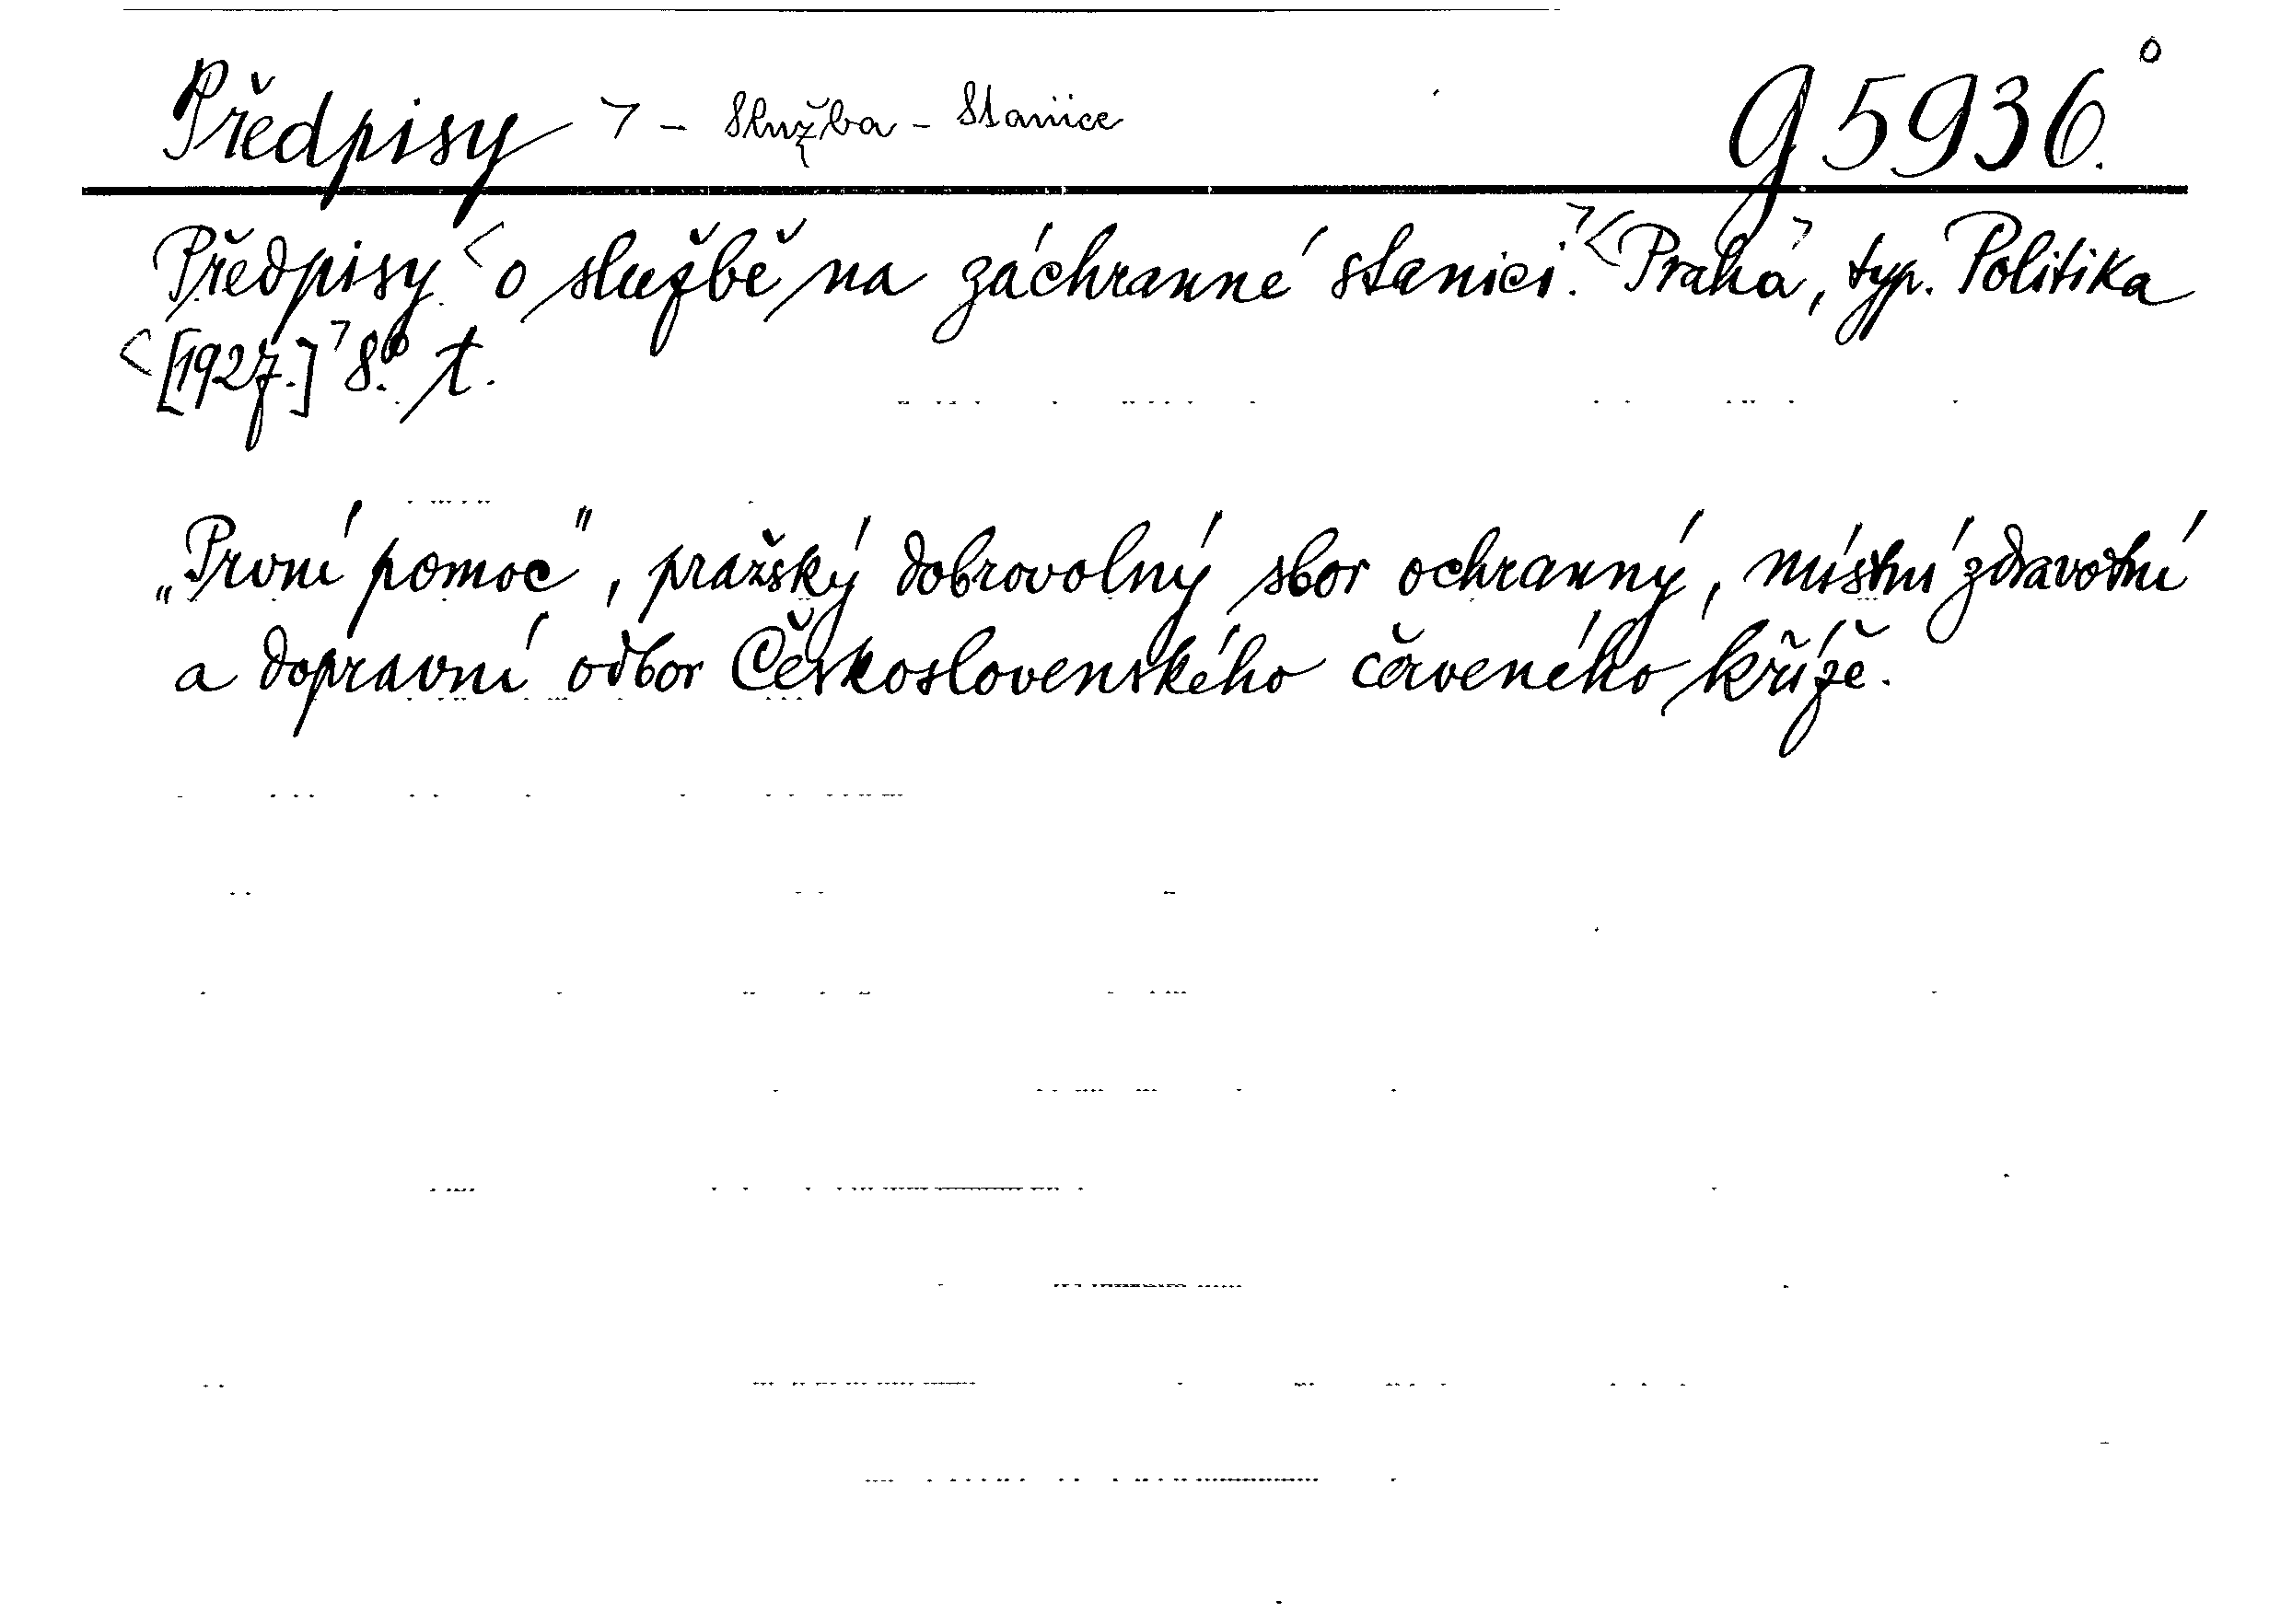 Předpisy > - Služba - Stanice g 5936.
Předpisy < o službě na záchranné stanici. > < Praha >, typ. Politika
< [1927.] > 8.° t.
„První pomoc", pražský dobrovolný sbor ochranný, místní zdravotní
a dopravní odbor Československého červeného kříže.